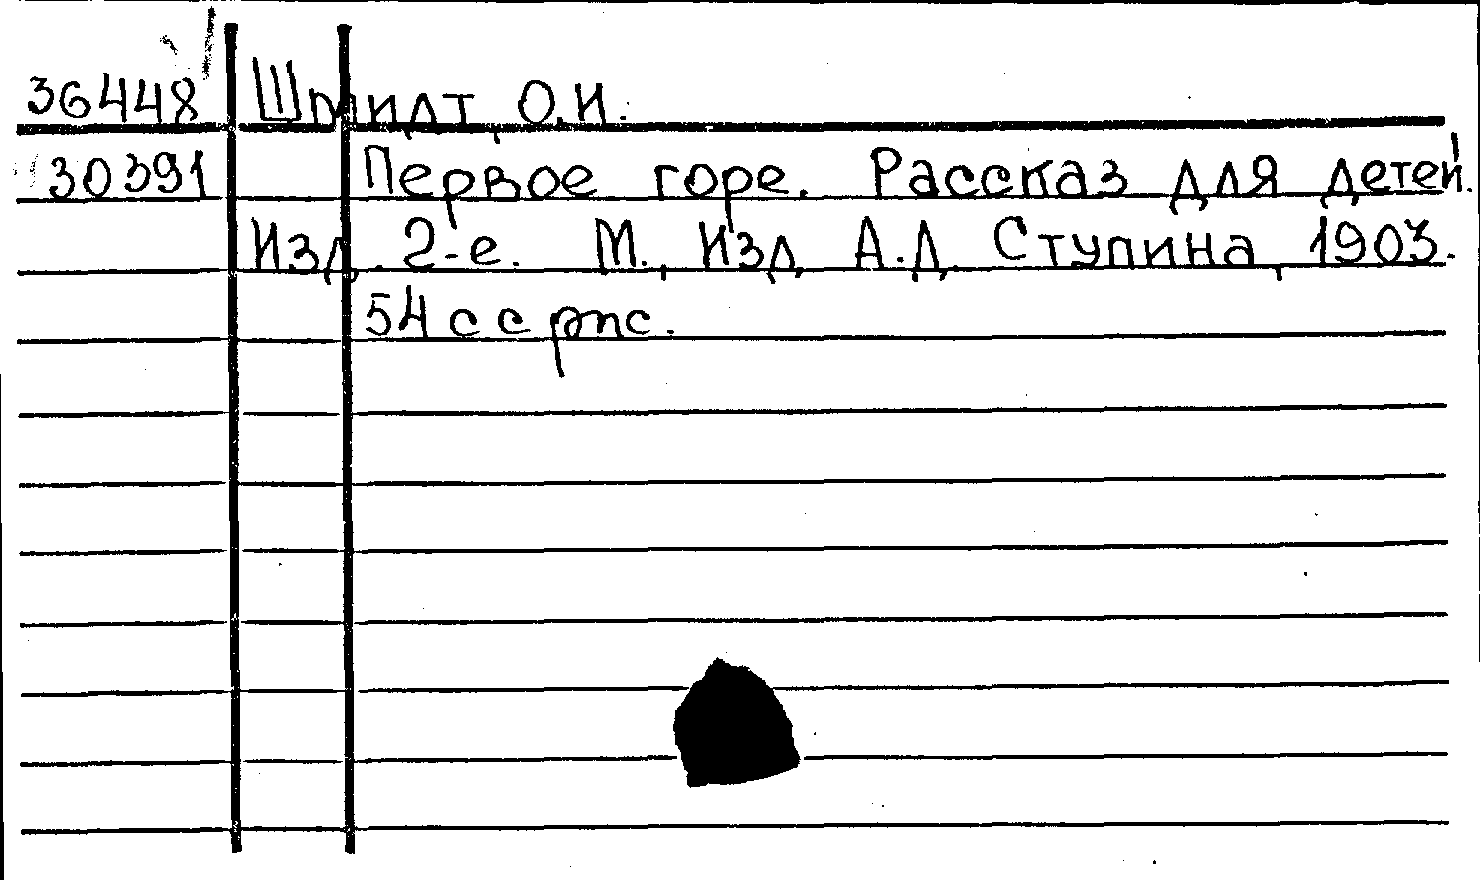 36448 Шмидт, О.И.
30391 Первое горе. Рассказ для детей.
Изд. 2-е. М., Изд. А.Д. Ступина, 1903.
54 с с рис.